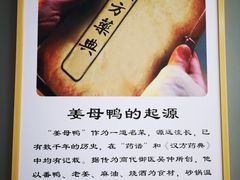 方藥典
姜母鸭的起源
“姜母鸭”作为一道名菜，源远流长，已
有数千年的历史，在“药语”和《汉方药典》
中均有记载。据传为商代御医吴仲所创，他
以番鸭、老姜、麻油、烧酒为食材，砂锅温